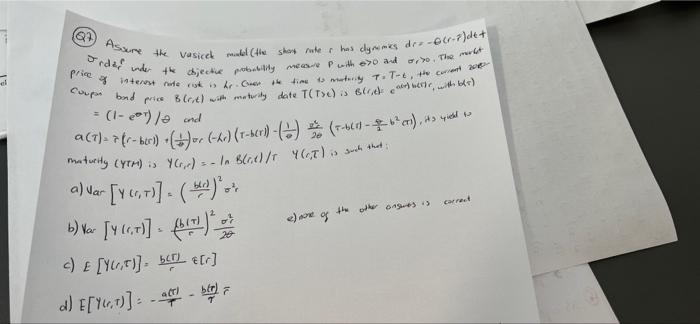 Q7 Assume the Vasicek model (the short rate r has dynamics dr = -θ(r-r̄)dt +
σr dzr^P under the objective probability measure P with θ>0 and σr>0. The market
price of interest rate risk is λr. Given the time to maturity τ = T-t, the current zero
coupon bond price B(r,t) with maturity date T(T>t) is B(r,t) = e^a(τ) b(τ) r, with b(τ)
= (1- e^θτ)/θ and
a(τ) = r̄ (τ-b(τ)) + (1/θ) σr (-λr) (τ-b(τ)) - (1/θ) σ²/2θ (τ-b(τ) - θ/2 b²(τ)), its yield to
maturity (YTM) is Y(r,τ) = - ln B(r,t)/τ Y(r,τ) is such that:
a) Var [Y(r,τ)] = (b(τ)/τ)² σ²r
b) Var [Y(r,τ)] = (b(τ)/τ)² σ²r/2θ
e) none of the other answers is correct
c) E [Y(r,τ)] = b(τ)/τ E[r]
d) E[Y(r,τ)] = - a(τ)/τ - b(τ)/τ r̄